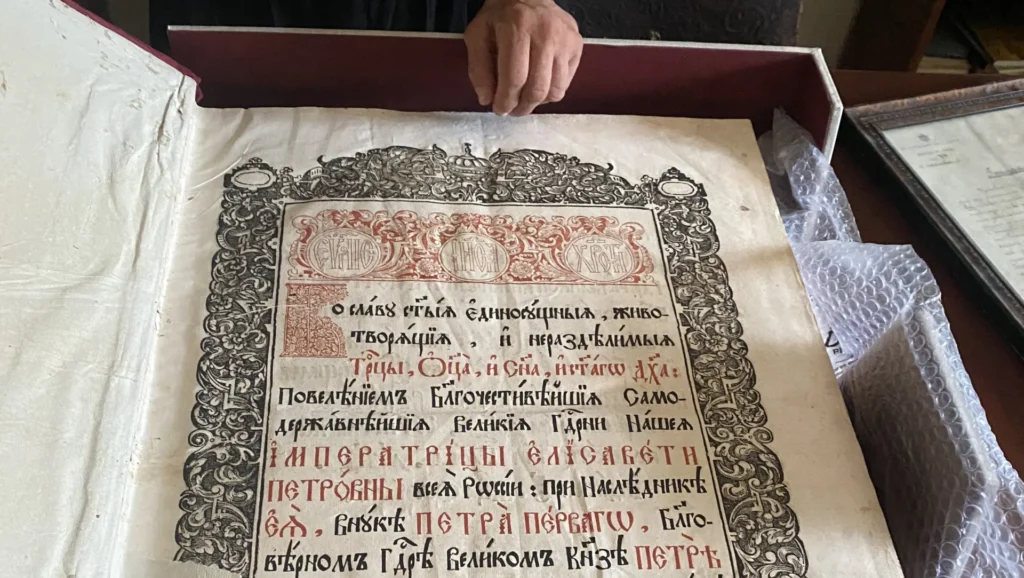 Во славу ст҃ыѧ є҆диносꙋ́щныѧ, живо-
творѧ́щїѧ, и҆ нераздѣли́мыѧ
Трⷪ҇цы, Ѻ҆ц҃а, и҆ Сн҃а, и҆ ст҃а́гѡ Дх҃а:
Повелѣ́нїемъ Бл҃гочести́вѣйшїѧ Само-
держа́внѣйшїѧ Вели́кїѧ Гдⷭ҇рни На́шеѧ
І҆МПЕРАТРІ́ЦЫ Є҆ЛІСАВЕ́ТИ
ПЕТРО́ВНЫ всеѧ̀ Рѡссі́и: при Наслѣ́дникѣ
Є҆Ѧ̀, внꙋ́кѣ ПЕТРА̀ ПЕ́РВАГѠ, Бл҃го-
вѣ́рномъ Гдⷭ҇рѣ Вели́комъ Кн҃зѣ ПЕТРѢ̀